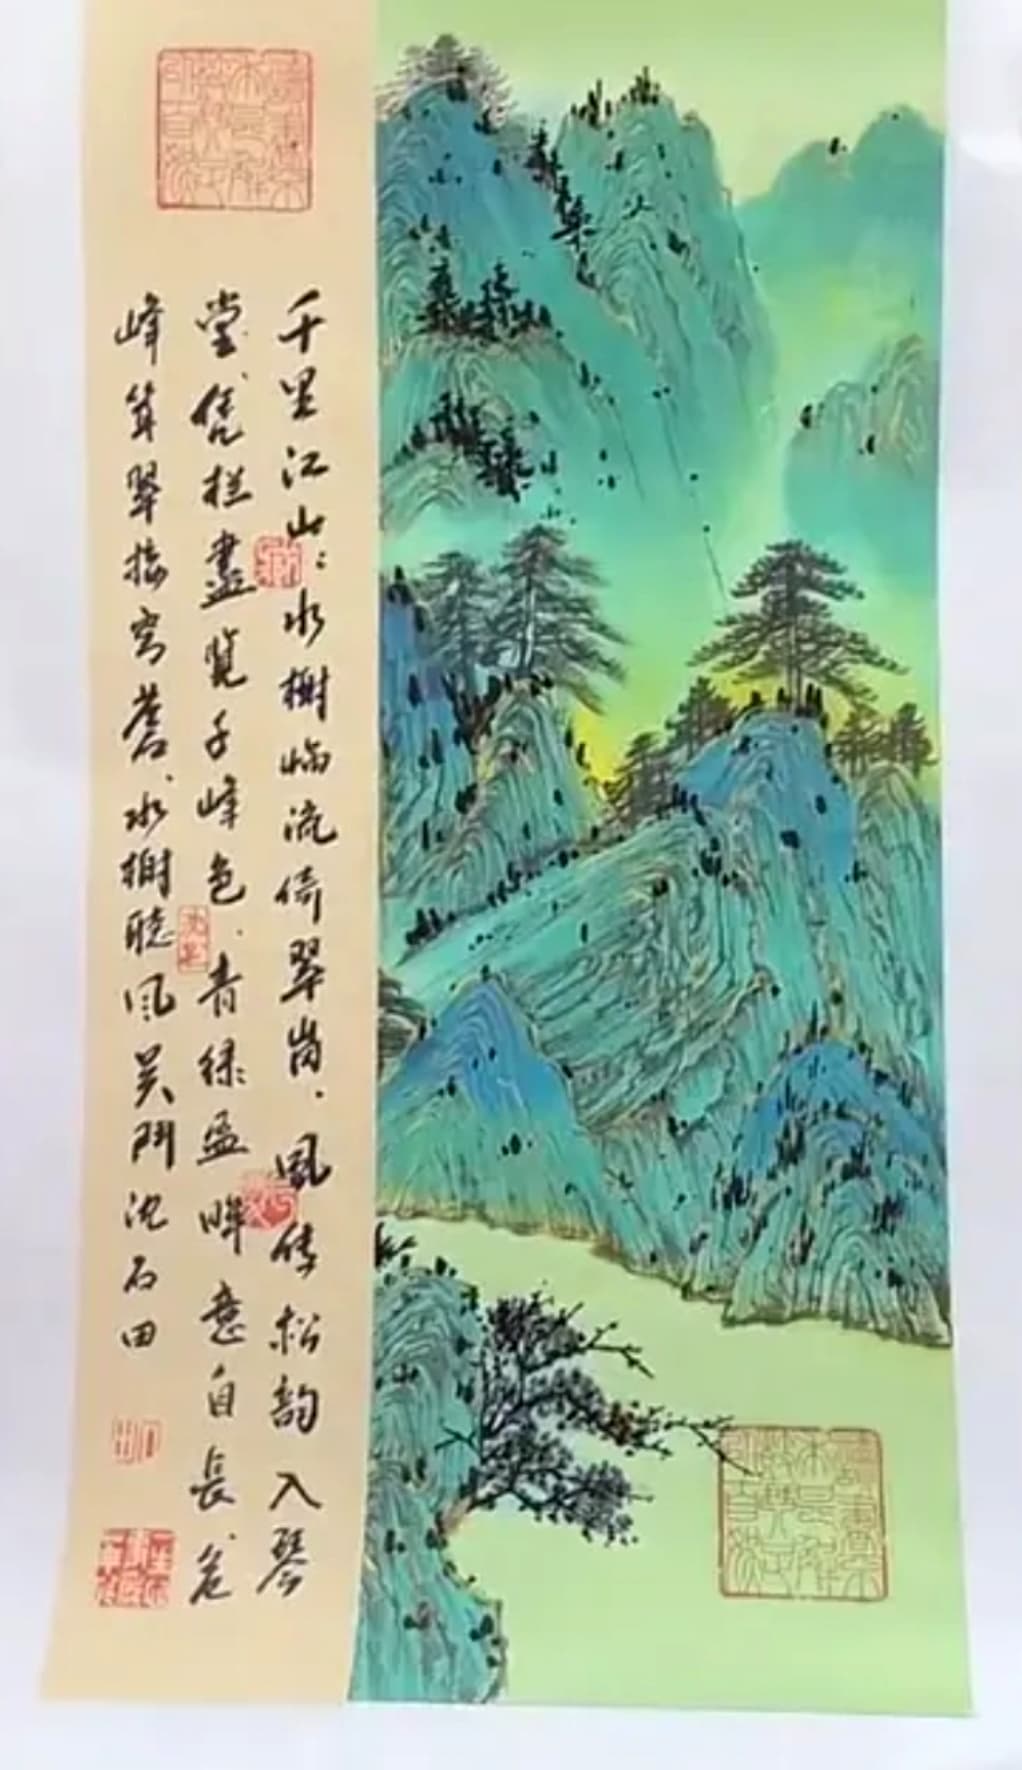 千里江山：水榭临流倚翠岗.風传松韵入琴
堂、凭栏盡览千峰色.青绿盈眸意自長、危
峰耸翠接穹蒼、水榭聽风吴門沈石田